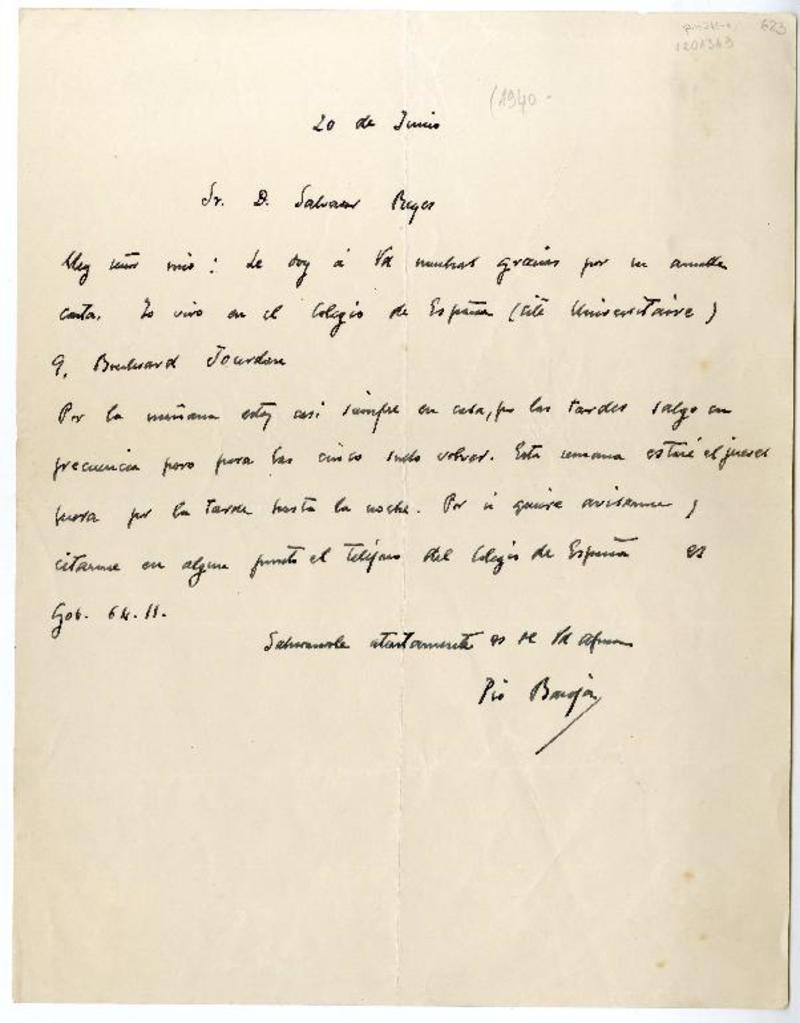 623
1201349
(1940-
20 de Junio
Sr. D. Salvador Reyes
Muy señor mio: Le doy á Vd muchas gracias por su amable
carta. Yo vivo en el Colegio de España (Cité Universitaire)
9, Boulevard Jourdan
Por la mañana estoy casi siempre en casa, por las tardes salgo con
frecuencia pero para las cinco suelo volver. Esta semana estaré el jueves
fuera por la tarde hasta la noche. Por si quiere avisarme y
citarme en algun punto el teléfono del Colegio de España es
Gob. 64.11.
Saludandole atentamente es de Vd afmo
Pio Baroja